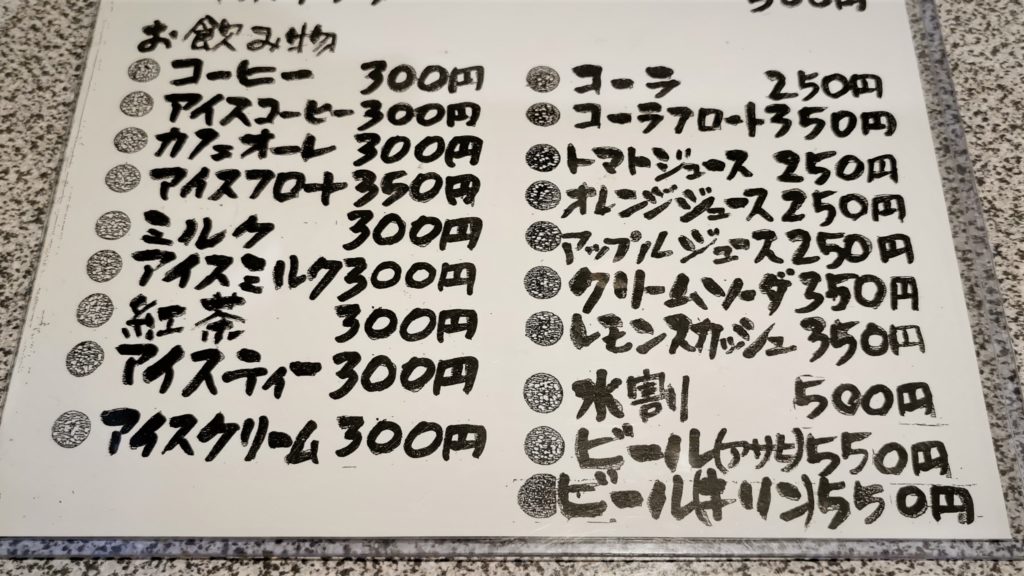 お飲み物
コーヒー 300円
アイスコーヒー 300円
カフェオーレ 300円
アイスフロート 350円
ミルク 300円
アイスミルク 300円
紅茶 300円
アイスティー 300円
アイスクリーム 300円
コーラ 250円
コーラフロート 350円
トマトジュース 250円
オレンジジュース 250円
アップルジュース 250円
クリームソーダ 350円
レモンスカッシュ 350円
水割 500円
ビール(アサヒ) 550円
ビール(キリン) 550円